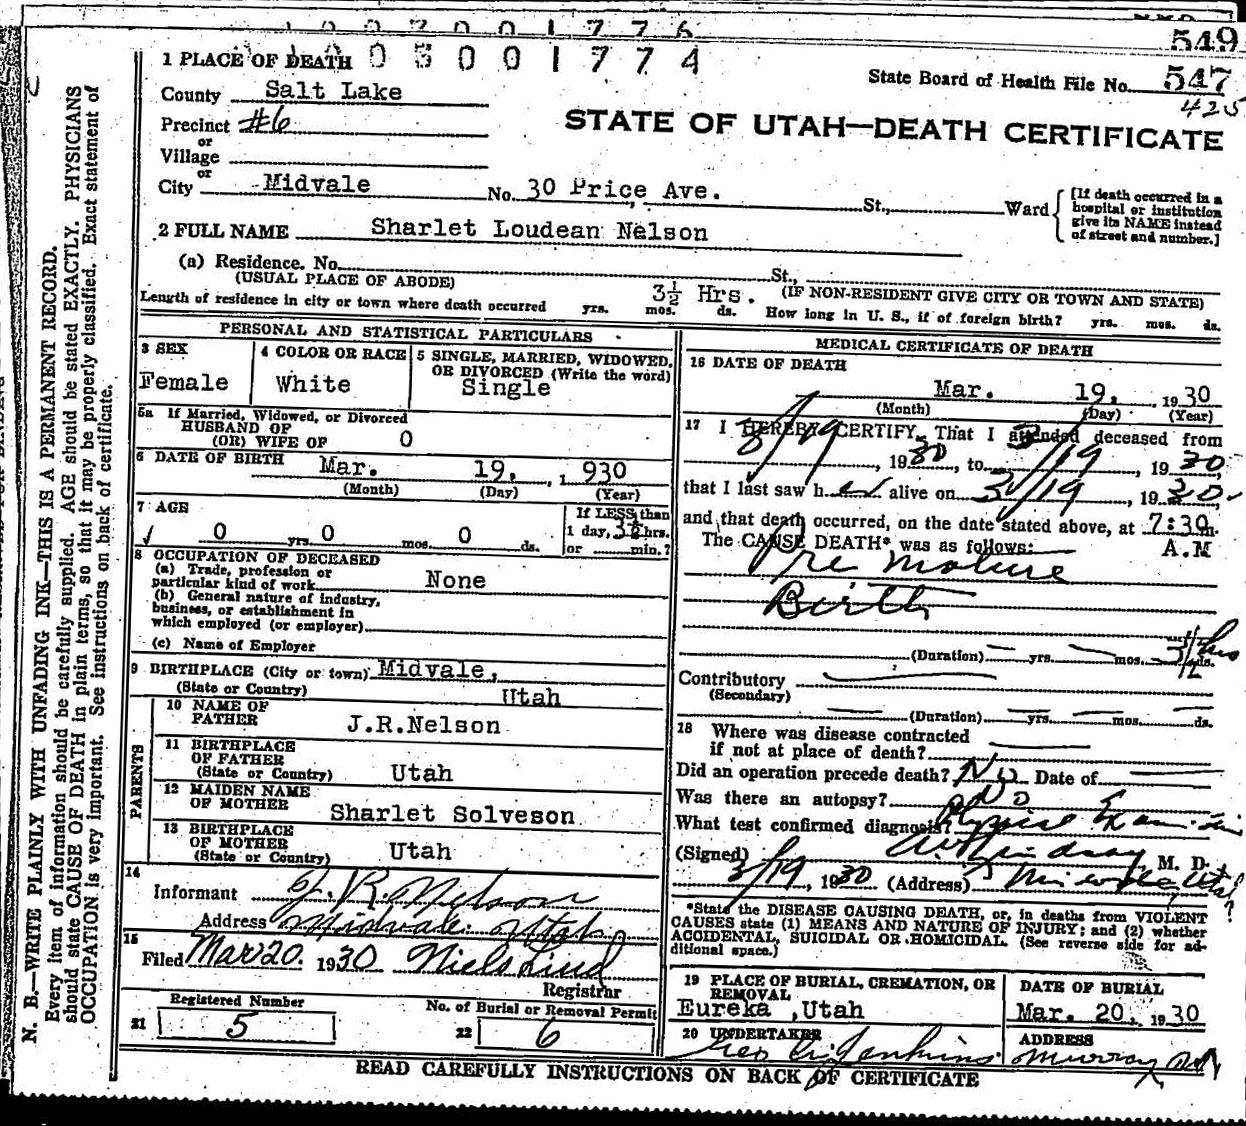 1003001776
549
1 PLACE OF DEATH 1003001774
State Board of Health File No. 547
425
County Salt Lake
Precinct #6
STATE OF UTAH—DEATH CERTIFICATE
or
Village
or
City Midvale No. 30 Price Ave. St., Ward
[If death occurred in a
hospital or institution
give its NAME instead
of street and number.]
2 FULL NAME Sharlet Loudean Nelson
(a) Residence. No. St.,
(USUAL PLACE OF ABODE) (IF NON-RESIDENT GIVE CITY OR TOWN AND STATE)
Length of residence in city or town where death occurred yrs. mos. 3½ Hrs. ds. How long in U. S., if of foreign birth? yrs. mos. ds.
PERSONAL AND STATISTICAL PARTICULARS
3 SEX Female
4 COLOR OR RACE White
5 SINGLE, MARRIED, WIDOWED,
OR DIVORCED (Write the word)
Single
5a If Married, Widowed, or Divorced
HUSBAND OF
(OR) WIFE OF 0
6 DATE OF BIRTH Mar. 19, 1930
(Month) (Day) (Year)
7 AGE
0 yrs. 0 mos. 0 ds.
If LESS than
1 day, 3½ hrs.
or min.?
8 OCCUPATION OF DECEASED
(a) Trade, profession or
particular kind of work None
(b) General nature of industry,
business, or establishment in
which employed (or employer)
(c) Name of Employer
9 BIRTHPLACE (City or town) Midvale,
(State or Country) Utah
PARENTS
10 NAME OF
FATHER J.R.Nelson
11 BIRTHPLACE
OF FATHER
(State or Country) Utah
12 MAIDEN NAME
OF MOTHER Sharlet Solveson
13 BIRTHPLACE
OF MOTHER
(State or Country) Utah
14
Informant J. R. Nelson
Address Midvale. Utah
15
Filed Mar 20. 1930 Niels Lind
Registrar
Registered Number
21 5
No. of Burial or Removal Permit
22 6
MEDICAL CERTIFICATE OF DEATH
16 DATE OF DEATH
Mar. 19, 1930
(Month) (Day) (Year)
17 I HEREBY CERTIFY, That I attended deceased from
3/19, 1930, to 3/19, 1930
that I last saw her alive on 3/19, 1930,
and that death occurred, on the date stated above, at 7:30 m.
A.M
The CAUSE DEATH* was as follows:
Pre mature
Birth
(Duration) yrs. mos. 3½ hrs ds.
Contributory
(Secondary)
(Duration) yrs. mos. ds.
18 Where was disease contracted
if not at place of death?
Did an operation precede death? No Date of
Was there an autopsy? No
What test confirmed diagnosis? Physical Examination
(Signed) Lindsay M. D.
3/19, 1930 (Address) Midvale, Utah
*State the DISEASE CAUSING DEATH, or, in deaths from VIOLENT
CAUSES state (1) MEANS AND NATURE OF INJURY; and (2) whether
ACCIDENTAL, SUICIDAL OR HOMICIDAL. (See reverse side for ad-
ditional space.)
19 PLACE OF BURIAL, CREMATION, OR
REMOVAL
Eureka ,Utah
DATE OF BURIAL
Mar. 20, 1930
20 UNDERTAKER
Jenkins
ADDRESS
Murray
READ CAREFULLY INSTRUCTIONS ON BACK OF CERTIFICATE
N. B.—WRITE PLAINLY WITH UNFADING INK—THIS IS A PERMANENT RECORD.
Every item of information should be carefully supplied. AGE should be stated EXACTLY. PHYSICIANS
should state CAUSE OF DEATH in plain terms, so that it may be properly classified. Exact statement of
OCCUPATION is very important. See instructions on back of certificate.